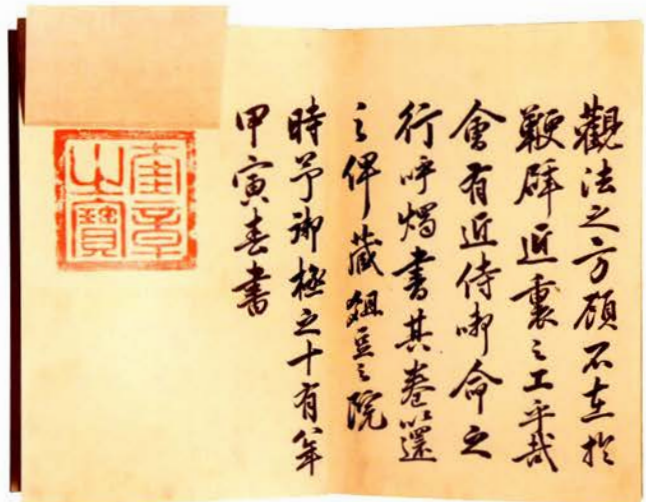 觀法之方顧不在於
鞭辟近裏之工乎哉
會有近侍啣命之
行呼燭書其卷以還
之俾藏俎豆之院
時予御極之十有八年
甲寅春書
奎章
之寶